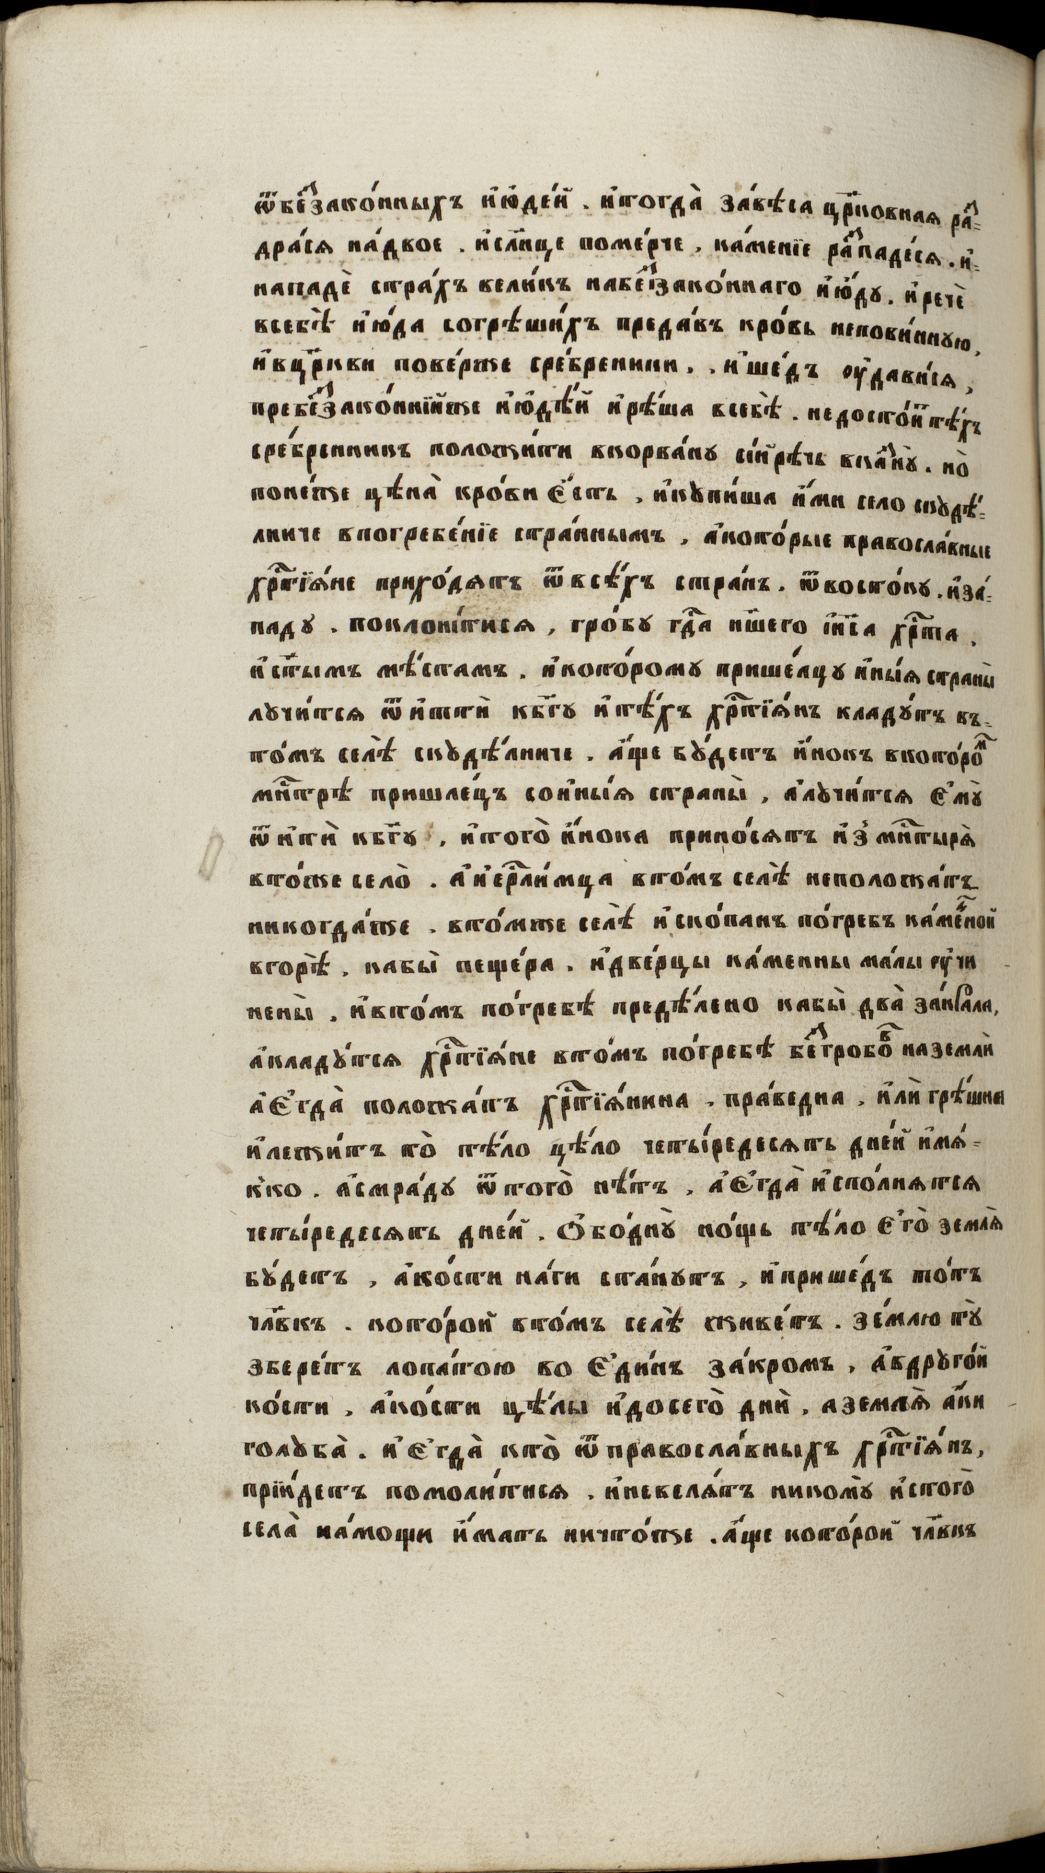 ѿбеⷥ҇зако́нныхъ и҆ю҆де́й . и҆тогда̀ за́вѣса цр҃ковная раⷥ҇-
дра́ся на́двое . и҆сл҃нце поме́рче , ка́менїе раⷥ҇паде́ся . и҆-
нападѐ стра́хъ вели́къ набеⷥ҇зако́ннаго и҆ю҆́ду . и҆речѐ
всебѣ̀ и҆ю́да согрѣши́хъ преда́въ кро́вь непови́нную ,
и҆вцр҃кви пове́рже сре́бреники . . и҆ше́дъ ѹ҆дави́ся ,
пребеⷥ҇зако́ннїйже и҆ю҆дѣ́й и҆рѣ́ша всебѣ̀ . недосто́итъ тѣ́хъ
сре́бреникъ положи́ти вкорва́ну си́йрѣчь вкаⷥ҇ну̀ . но̀
поне́же цѣна̀ кро́ви є҆́сть , и҆купи́ша и҆́ми село скудѣ́-
лниче впогребе́нїе стра́ннымъ , а҆кото́рые правосла́вные
хрⷭ҇тїя́не прихо́дятъ ѿвсѣ́хъ стра́нъ . ѿвосто́ку . и҆за́-
паду . поклони́тися , гро́бу гдⷭ҇а н҃шего і҆и҃са хрⷭ҇та .
и҆ст҃ымъ мѣ́стамъ . и҆кото́рому прише́лцу и҆ны́я страны̀
лучи́тся ѿи҆ттѝ кбг҃у и҆тѣ́хъ хрⷭ҇тїя́нъ кладу́тъ въ-
то́мъ селѣ̀ скудѣ́лниче . а҆́ще бу́детъ и҆́нокъ вкото́роⷨ
мⷭ҇нтрѣ пришле́цъ сои҆ны́я страны̀ , а҆лучи́тся є҆му̀
ѿи҆тѝ кбг҃у , и҆того̀ и҆́нока прино́сятъ и҆з̾ мⷭ҇нтыря̀
вто́же село̀ . а҆и҆ерⷭ҇ли́мца вто́мъ селѣ̀ неположа́тъ
никогда́же . вто́мже селѣ̀ и҆ско́панъ по́гребъ ка́меⷩ҇ной
вгорѣ̀ . кабы̀ пеще́ра . и҆две́рцы ка́менны ма́лы ѹ҆чи
нены̀ . и҆вто́мъ по́гребѣ предѣ́лено кабы̀ два̀ за́крала ,
а҆кладу́тся хрⷭ҇тїя́не вто́мъ по́гребѣ беⷥ҇гробоⷡ҇ наземлѝ
а҆є҆гда̀ положа́тъ хрⷭ҇тїя́нина . пра́ведна . и҆лѝ грѣ́шна
и҆лежи́тъ то̀ тѣ́ло цѣ́ло четы́редесять дне́й и҆мя́-
кко . а҆смра́ду ѿтого̀ нѣ́тъ , а҆є҆гда̀ и҆спо́лнятся
четы́редесять дне́й . ѻ҆бо́дну̀ но́щь тѣ́ло є҆го̀ земля̀
бу́детъ , а҆ко́сти на́ги ста́нутъ , и҆прише́дъ то́тъ
чл҃вкъ . кото́рой вто́мъ селѣ̀ живе́тъ . зе́млю ту̀
збере́тъ лопа́тою во є҆ди́нъ за́кромъ , а҆вдруго́й
ко́сти , а҆ко́сти цѣ́лы и҆досего̀ дни̑ , аземля̀ а҆́ки
голуба̀ . и҆є҆гда̀ кто̀ ѿправосла́вныхъ хрⷭ҇тїя́нъ ,
прїи́детъ помоли́тися . и҆невеля́тъ никому̀ и҆стого̀
села̀ на́мощи и҆́мать ничто́же . а҆́ще кото́рой чл҃вкъ